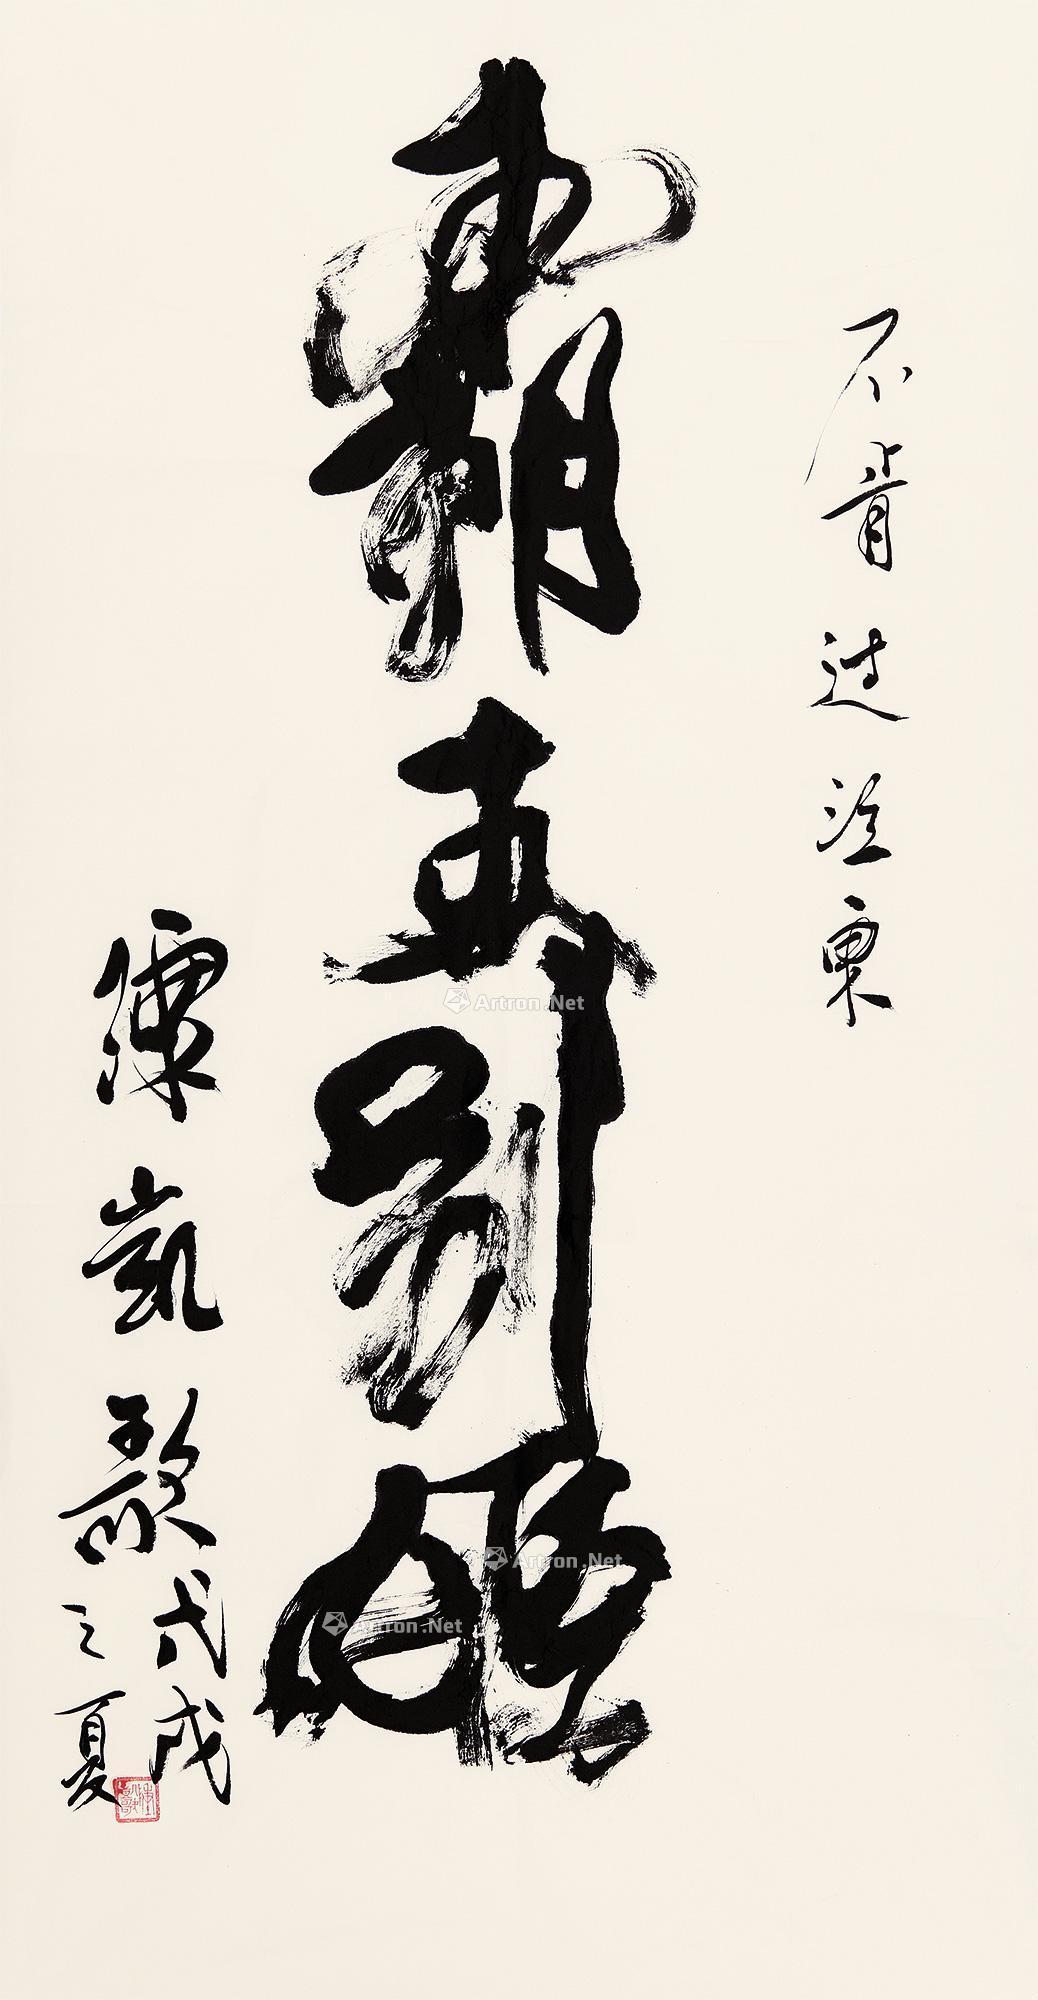 不肯过江东
霸王别姬
儒凯敬
戊戌
之夏
Artron.Net
Artron.Net
Artron.Net